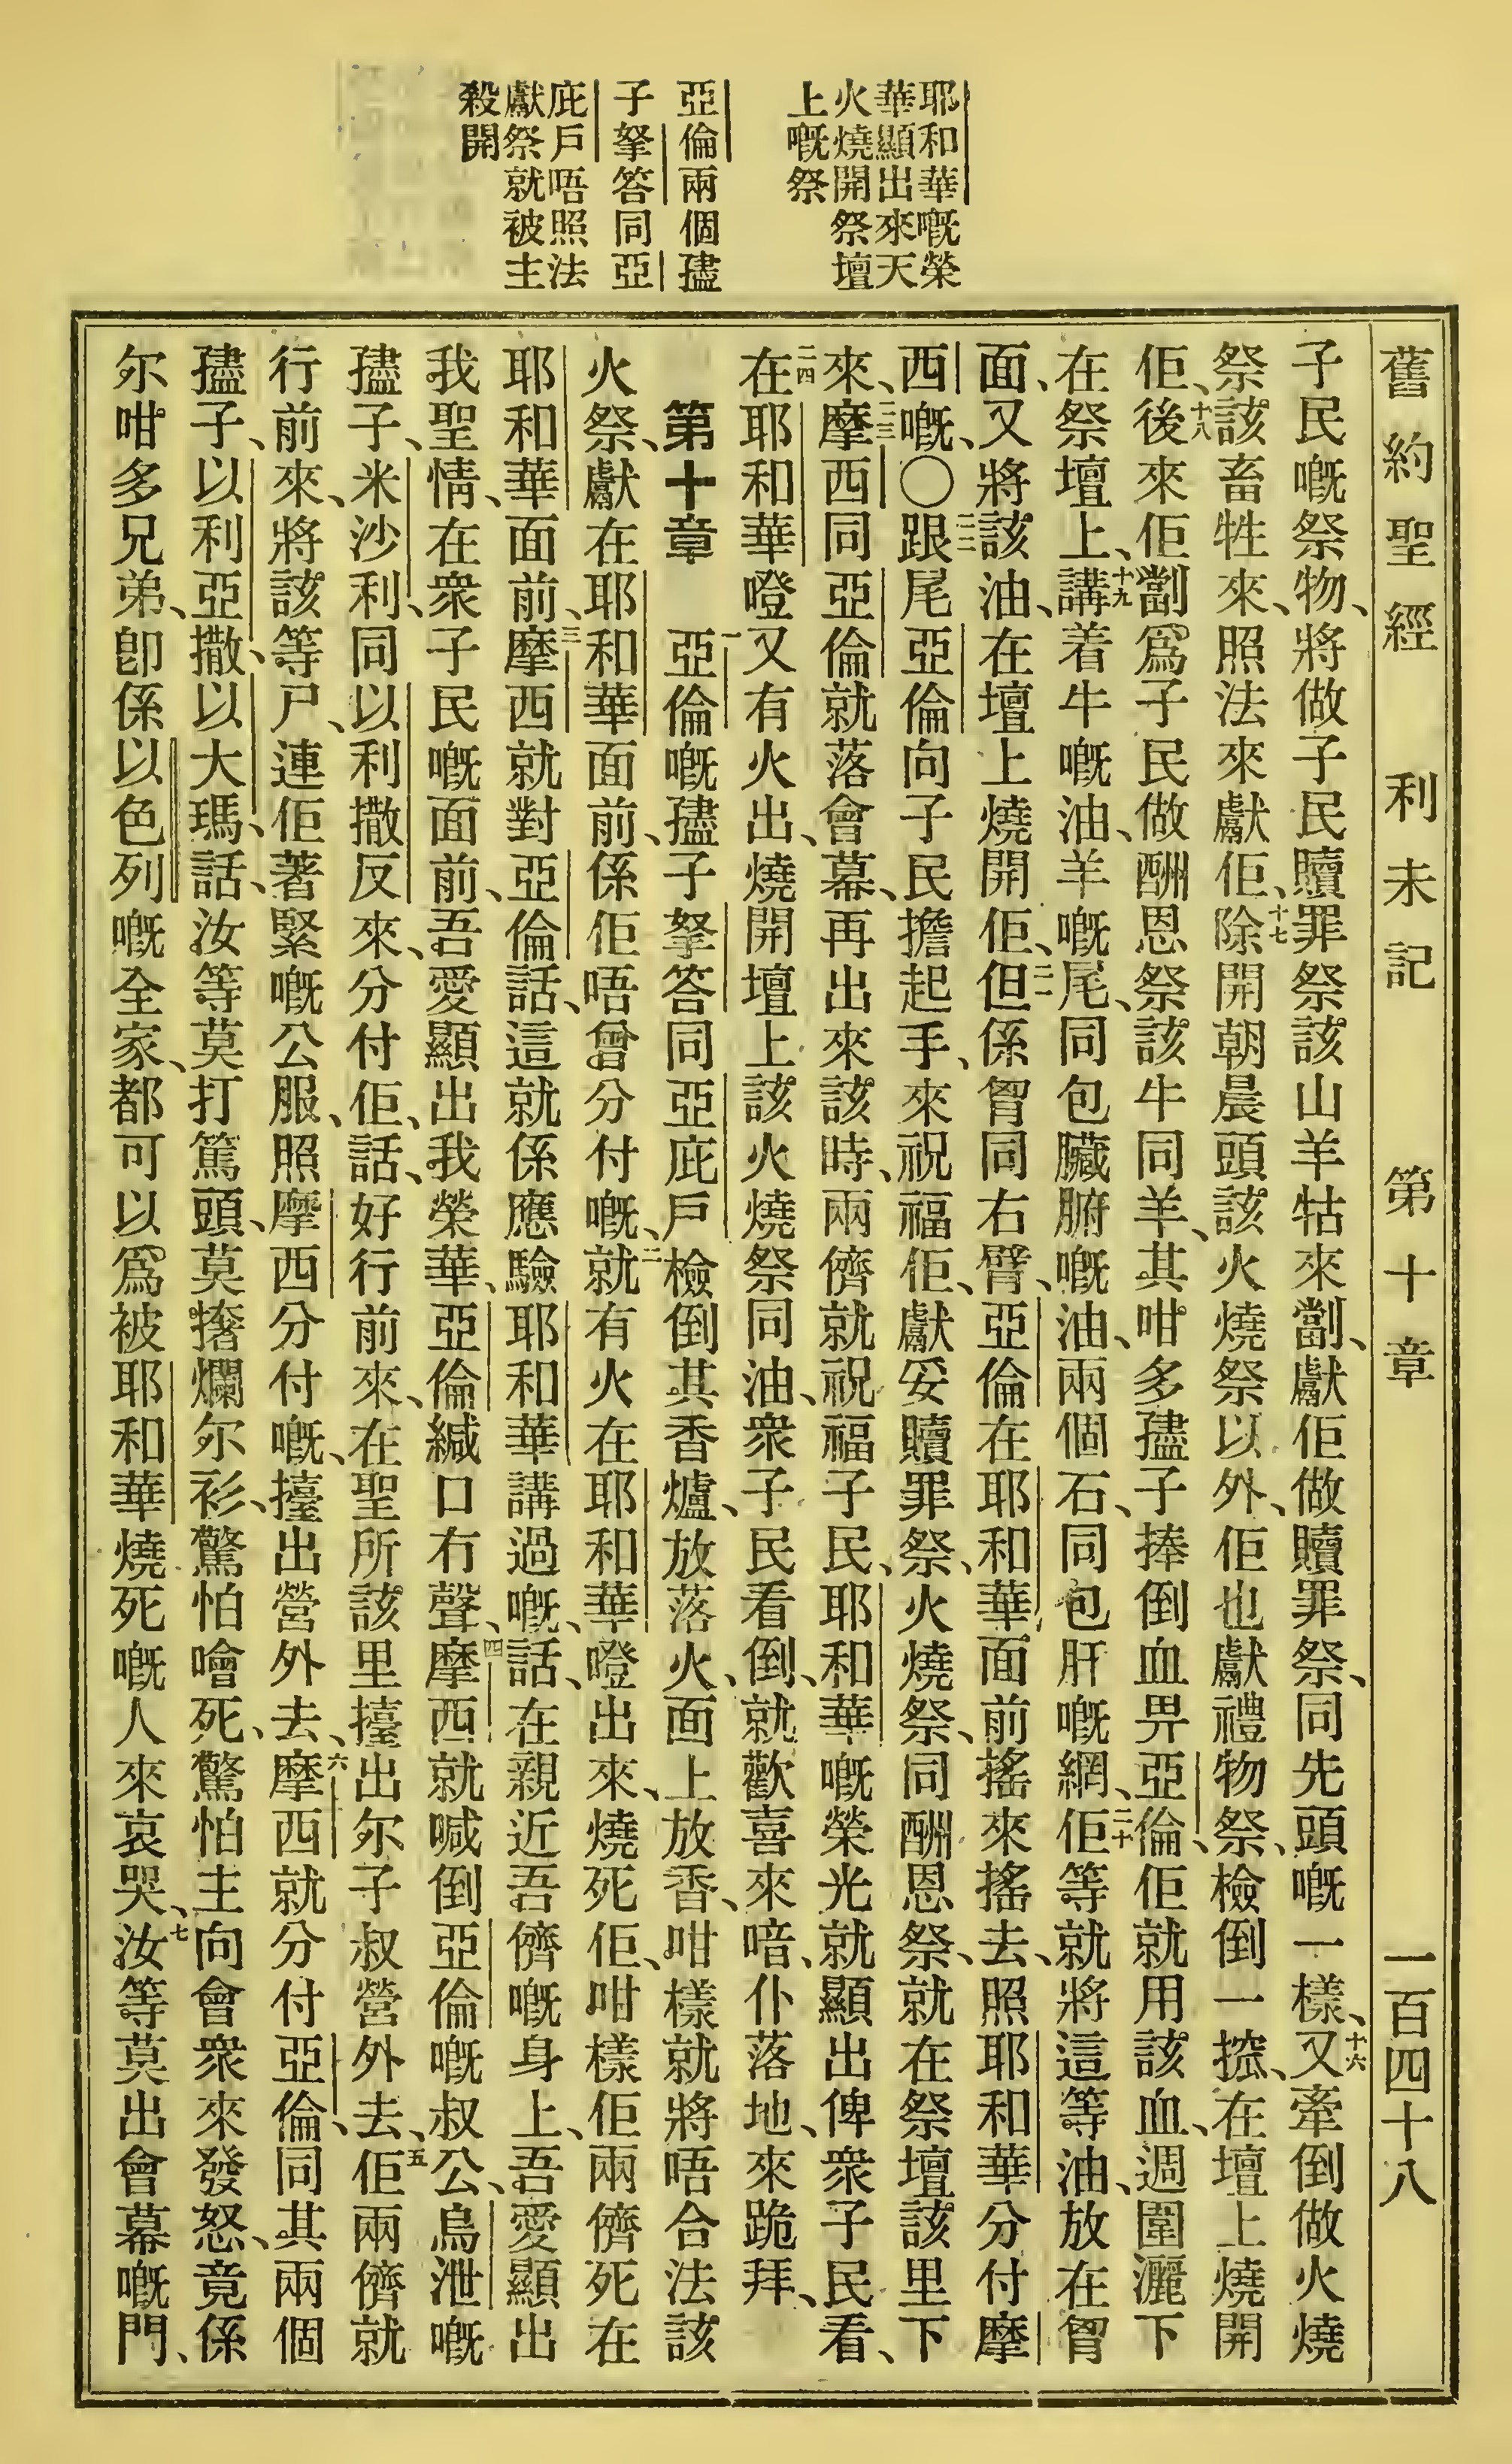 耶和華嘅榮
華顯出來天
火燒開祭壇
上嘅祭
亞倫兩個㜽
子拏答同亞
庇戶唔照法
獻祭就被主
殺開
舊約聖經 利未記 第十章 一百四十八
子民嘅祭物、將做子民贖罪祭該山羊牯來劏、獻佢做贖罪祭、同先頭嘅一樣、十六又牽倒做火燒
祭該畜牲來、照法來獻佢、十七除開朝晨頭該火燒祭以外、佢也獻禮物祭、檢倒一搲、在壇上燒開
佢、十八後來佢劏為子民做酬恩祭該牛同羊、其咁多㜽子捧倒血畀亞倫、佢就用該血、週圍灑下
在祭壇上、十九講着牛嘅油、羊嘅尾、同包臟腑嘅油、兩個石、同包肝嘅網、二十佢等就將這等油、放在胷
面、又將該油、在壇上燒開佢、二一但係胷同右臂、亞倫在耶和華面前搖來搖去、照耶和華分付摩
西嘅、〇二二跟尾亞倫向子民擔起手、來祝福佢、獻妥贖罪祭、火燒祭、同酬恩祭、就在祭壇該里下
來、二三摩西同亞倫就落會幕、再出來該時、兩儕就祝福子民、耶和華嘅榮光就顯出俾衆子民看、
二四在耶和華噔又有火出、燒開壇上該火燒祭同油、衆子民看倒、就歡喜來喑、仆落地、來跪拜、
第十章 一亞倫嘅㜽子拏答同亞庇戶檢倒其香爐、放落火、面上放香、咁樣就將唔合法該
火祭、獻在耶和華面前、係佢唔曾分付嘅、二就有火在耶和華噔出來、燒死佢、咁樣佢兩儕死在
耶和華面前、三摩西就對亞倫話、這就係應驗耶和華講過嘅、話、在親近吾儕嘅身上、吾愛顯出
我聖情、在衆子民嘅面前、吾愛顯出我榮華、亞倫緘口冇聲、四摩西就喊倒亞倫嘅叔公、烏泄嘅
㜽子、米沙利、同以利撒反來、分付佢、話、好行前來、在聖所該里擡出尔子叔營外去、五佢兩儕就
行前來、將該等尸、連佢著緊嘅公服、照摩西分付嘅、擡出營外去、六摩西就分付亞倫、同其兩個
㜽子、以利亞撒、以大瑪、話、汝等莫打篤頭、莫撦爛尔衫、驚怕噲死、驚怕主向會衆來發怒、竟係
尔咁多兄弟、卽係以色列嘅全家、都可以為被耶和華燒死嘅人來哀哭、七汝等莫出會幕嘅門、